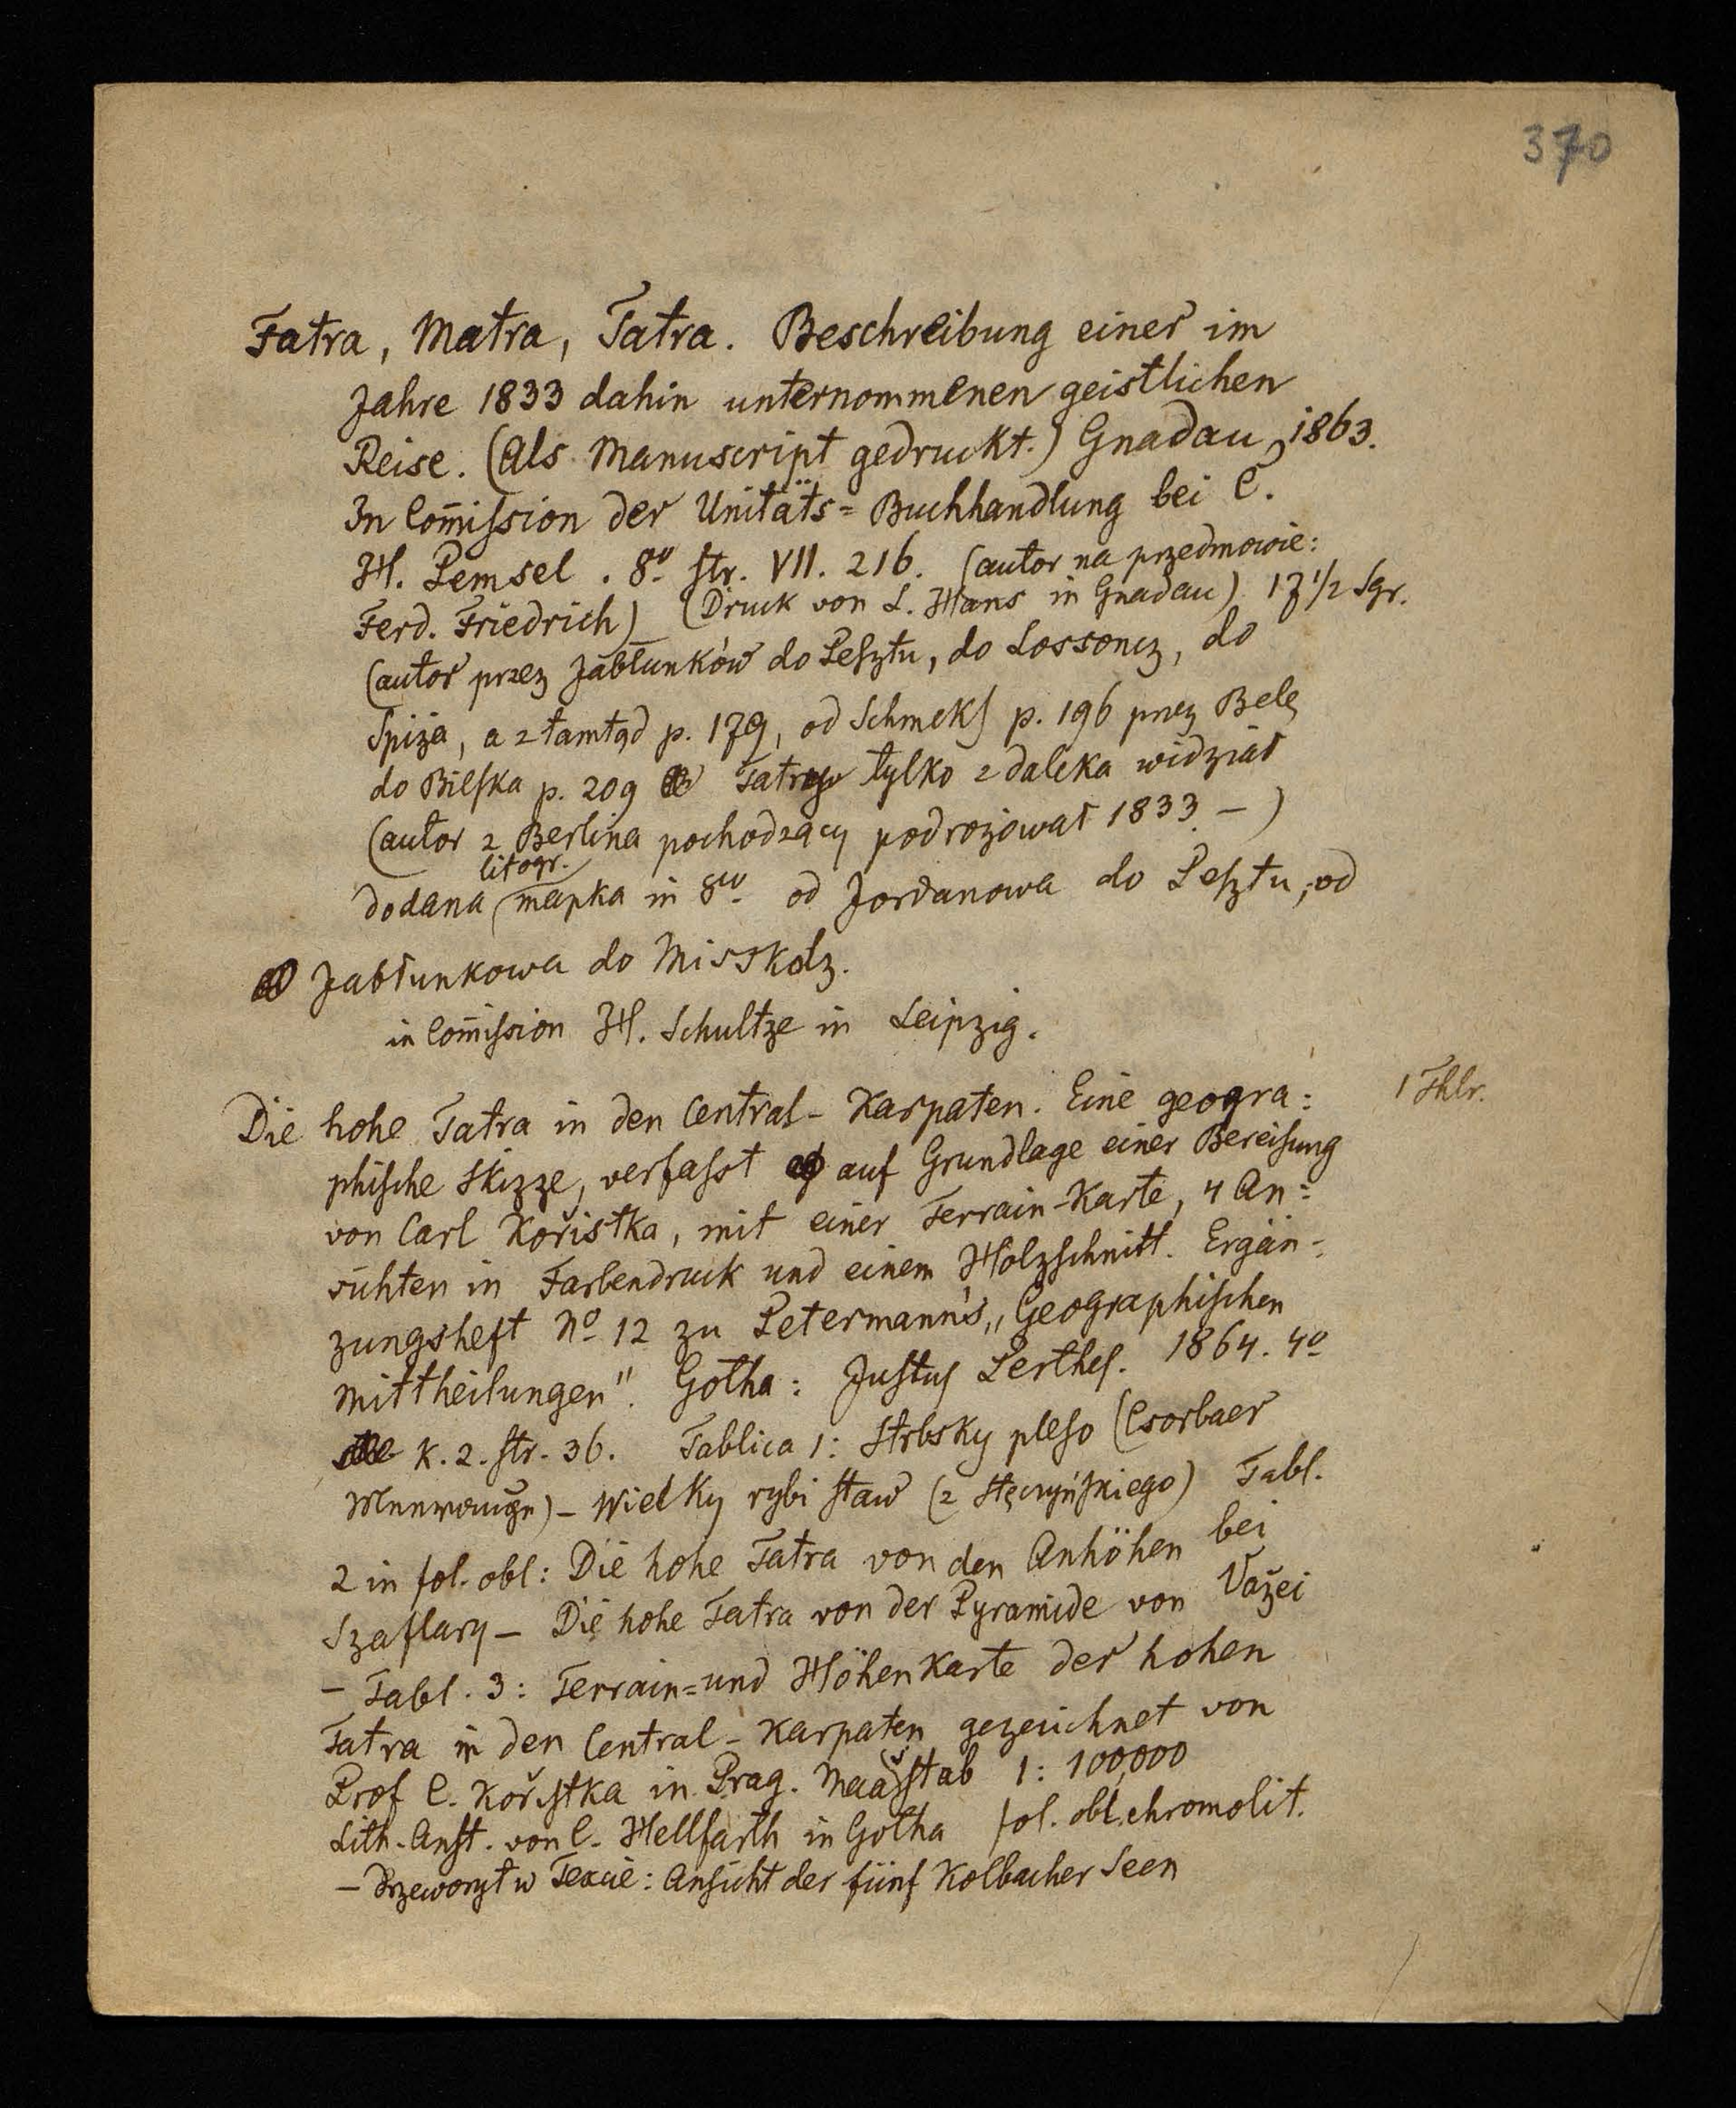 370
Fatra, Matra, Tatra. Beschreibung einer im
Jahre 1833 dahin unternommenen geistlichen
Reise. (Als Manuscript gedruckt.) Gnadau, 1863.
In Com̅ission der Unitäts= Buchhandlung bei C.
H. Pemsel. 8º str. VII. 216. (autor na przedmowie:
Ferd. Friedrich) (Druck von L. Hans in Gnadau) 17 1/2 Sgr.
(autor przez Jabłunków do Pesztu, do Lossoncz, do
Spiża, a ztamtąd p. 179, od Schmeks p. 196 przez Belę
do Bielska p. 209 Tatry tylko zdaleka widział
(autor z Berlina pochodzący podrożował 1833. -)
litogr.
dodana mapka in 8vo od Jordanowa do Pesztu, od
Jabłunkowa do Misskolz.
in Com̅ission H. Schultze in Leipzig.
Die hohe Tatra in den Central-Karpaten. Eine geogra: 1 Thlr.
phische Skizze, verfasst auf Grundlage einer Bereisung
von Carl Kořistka, mit einer Terrain-Karte, 4 An=
sichten in Farbendruck und einem Holzschnitt. Ergän=
zungsheft Nº 12 zu Petermann's „Geographischen
Mittheilungen". Gotha: Justus Perthes. 1864. 4º
k. 2. str. 36. Tablica 1: Strbsky pleso (Csorbaer
- Wielky rybi staw (z Stęczyńskiego) Tabl.
2 in fol. obl: Die hohe Tatra von den Anhöhen bei
Szaflary - Die hohe Tatra von der Pyramide von Važei
- Tabl. 3: Terrain= und Höhenkarte der hohen
Tatra in den Central-Karpaten gezeichnet von
Prof C. Kořistka in Prag. Maasstab 1: 100,000
Lith. Anst. von C. Hellfarth in Gotha fol. obl. chromolit.
- Drzeworyt w Texcie: Ansicht der fünf Kolbacher Seen